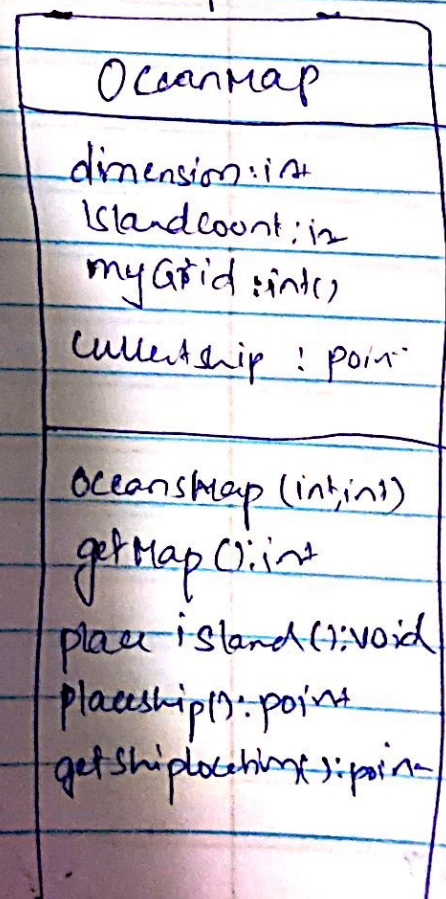 OceanMap
dimension: int
IslandCount: in
myGrid: int()
currentship : point
OceansMap (int, int)
getMap (): int
place island(): void
placeship(): point
getshiplocation(): point